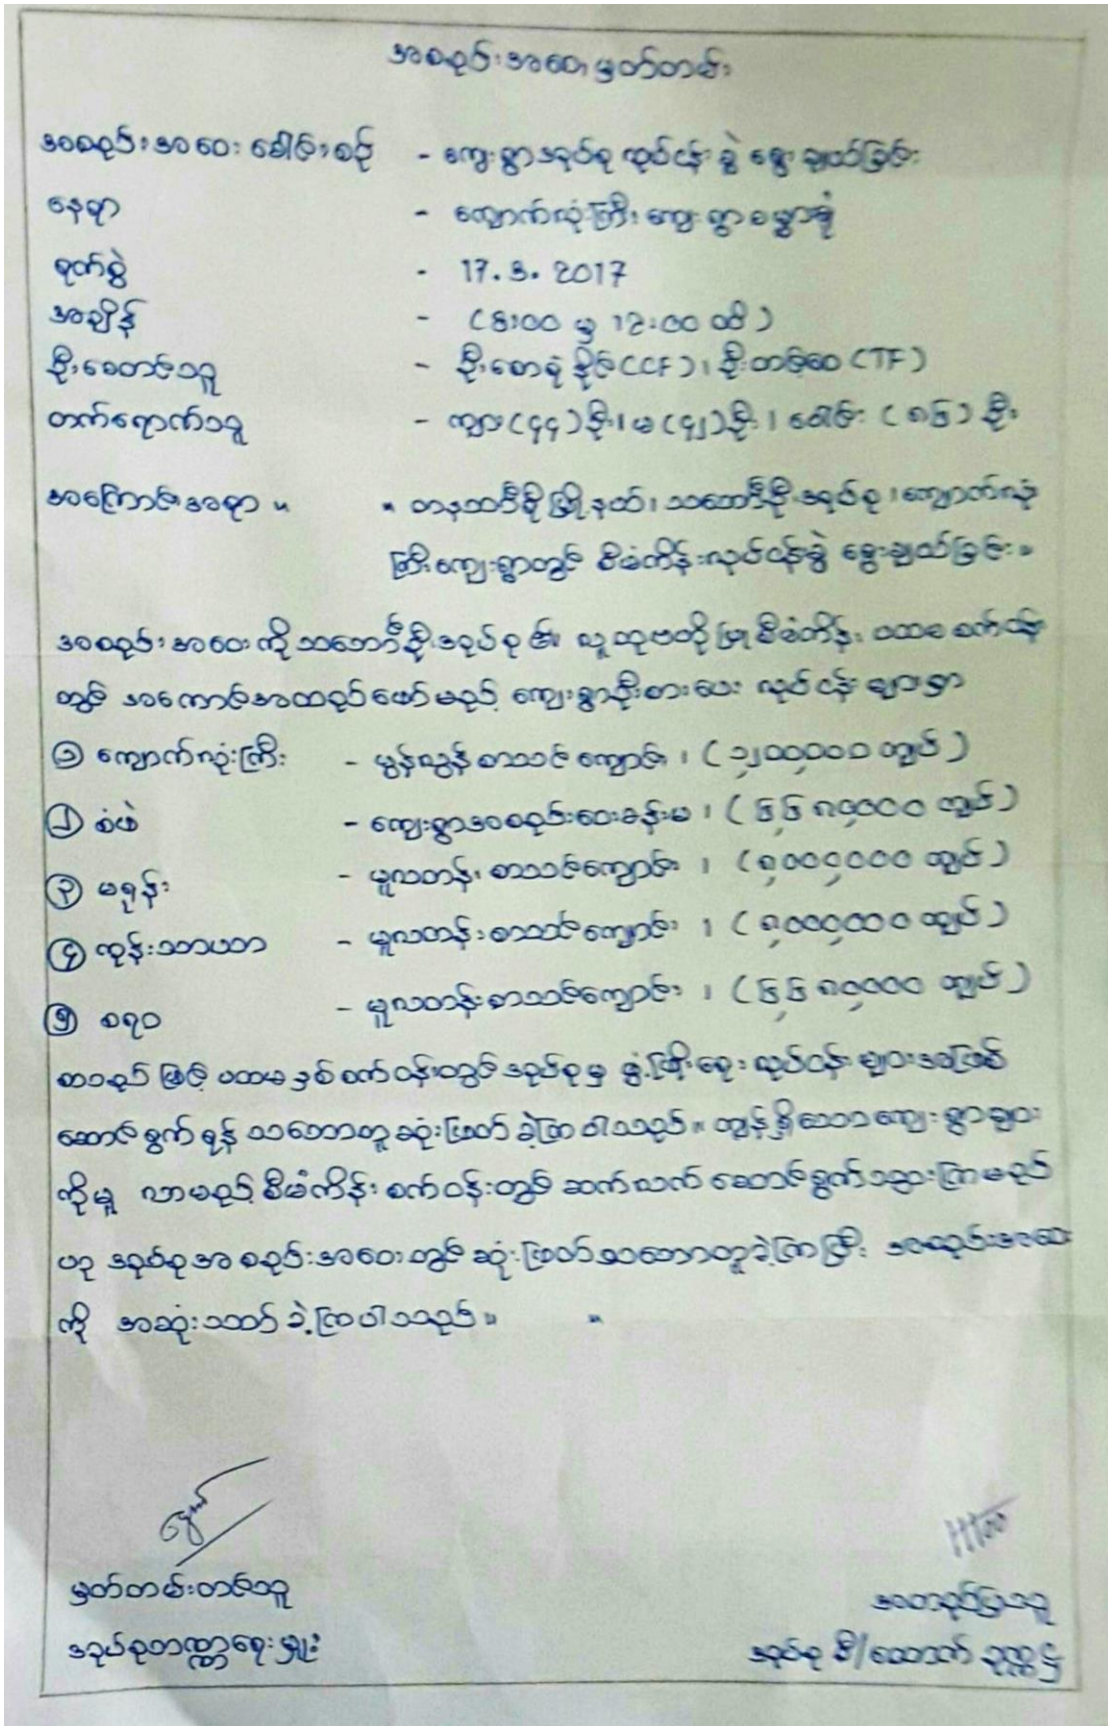 အစည်းအဝေးမှတ်တမ်း
အစည်းအဝေးခေါင်းစဉ် - ကျေးရွာအုပ်စု လုပ်ငန်းခွဲ ရွေးချယ်ခြင်း
နေရာ - ကျောက်လုံးကြီး ကျေးရွာ
ရက်စွဲ - 17.3.2017
အချိန် - (8:00 မှ 12:00 ထိ)
ဦးစောတင်သူ - ဦးစော နိုင် (CCF)၊ ဦး (TF)
တက်ရောက်သူ - ကျား (၄၄) ဦး၊ မ (၄၂) ဦး၊ ပေါင်း (၈၆) ဦး
အကြောင်းအရာ။ ။ တနင်္သာရီမြို့နယ်၊ အုပ်စု၊ ကျောက်လုံး
ကြီးကျေးရွာတွင် စီမံကိန်းလုပ်ငန်းခွဲ ရွေးချယ်ခြင်း။
အစည်းအဝေးကို အုပ်စု၏ လူထုဗဟိုပြုစီမံကိန်း ပထမစက်ဝန်း
တွင် အကောင်အထည်ဖော်မည့် ကျေးရွာဦးစားပေး လုပ်ငန်းများမှာ
၁ ကျောက်လုံးကြီး - မူလွန်စာသင်ကျောင်း၊ (၁၂၀၀၀၀၀၀ ကျပ်)
၂ စံဖဲ - ကျေးရွာအစည်းဝေးခန်းမ၊ (၆၆၈၀၀၀၀ ကျပ်)
၃ မရန်း - မူလတန်းစာသင်ကျောင်း၊ (၈၀၀၀၀၀၀ ကျပ်)
၄ ကုန်းသာယာ - မူလတန်းစာသင်ကျောင်း၊ (၈၀၀၀၀၀၀ ကျပ်)
၅ စရဝ - မူလတန်းစာသင်ကျောင်း၊ (၆၆၈၀၀၀၀ ကျပ်)
စသည်ဖြင့် ပထမနှစ်စက်ဝန်းတွင် အုပ်စုမှ ဖွံ့ဖြိုးရေးလုပ်ငန်းများအဖြစ်
ဆောင်ရွက်ရန် သဘောတူဆုံးဖြတ်ခဲ့ကြပါသည်။ ကျန်ရှိသောကျေးရွာများ
ကိုမူ လာမည့်စီမံကိန်းစက်ဝန်းတွင် ဆက်လက်ဆောင်ရွက်သွားကြမည်
ဟု အုပ်စုအစည်းအဝေးတွင် ဆုံးဖြတ်သဘောတူခဲ့ကြပြီး အစည်းအဝေး
ကို အဆုံးသတ်ခဲ့ကြပါသည်။ ။
မှတ်တမ်းတင်သူ
အုပ်စုဘဏ္ဍာရေးမှူး
အတည်ပြုသူ
အုပ်စု စီ/ထောက် ဥက္ကဋ္ဌ